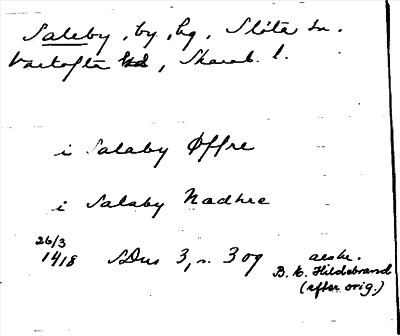 Saleby, by, hg, Slöta sn.
Vartofta hd, Skarab. l.
i Salaby Øffre
i Salaby Nadhre
26/3
1418 SDns 3, n. 309 avskr.
B. E. Hildebrand
(efter orig.)